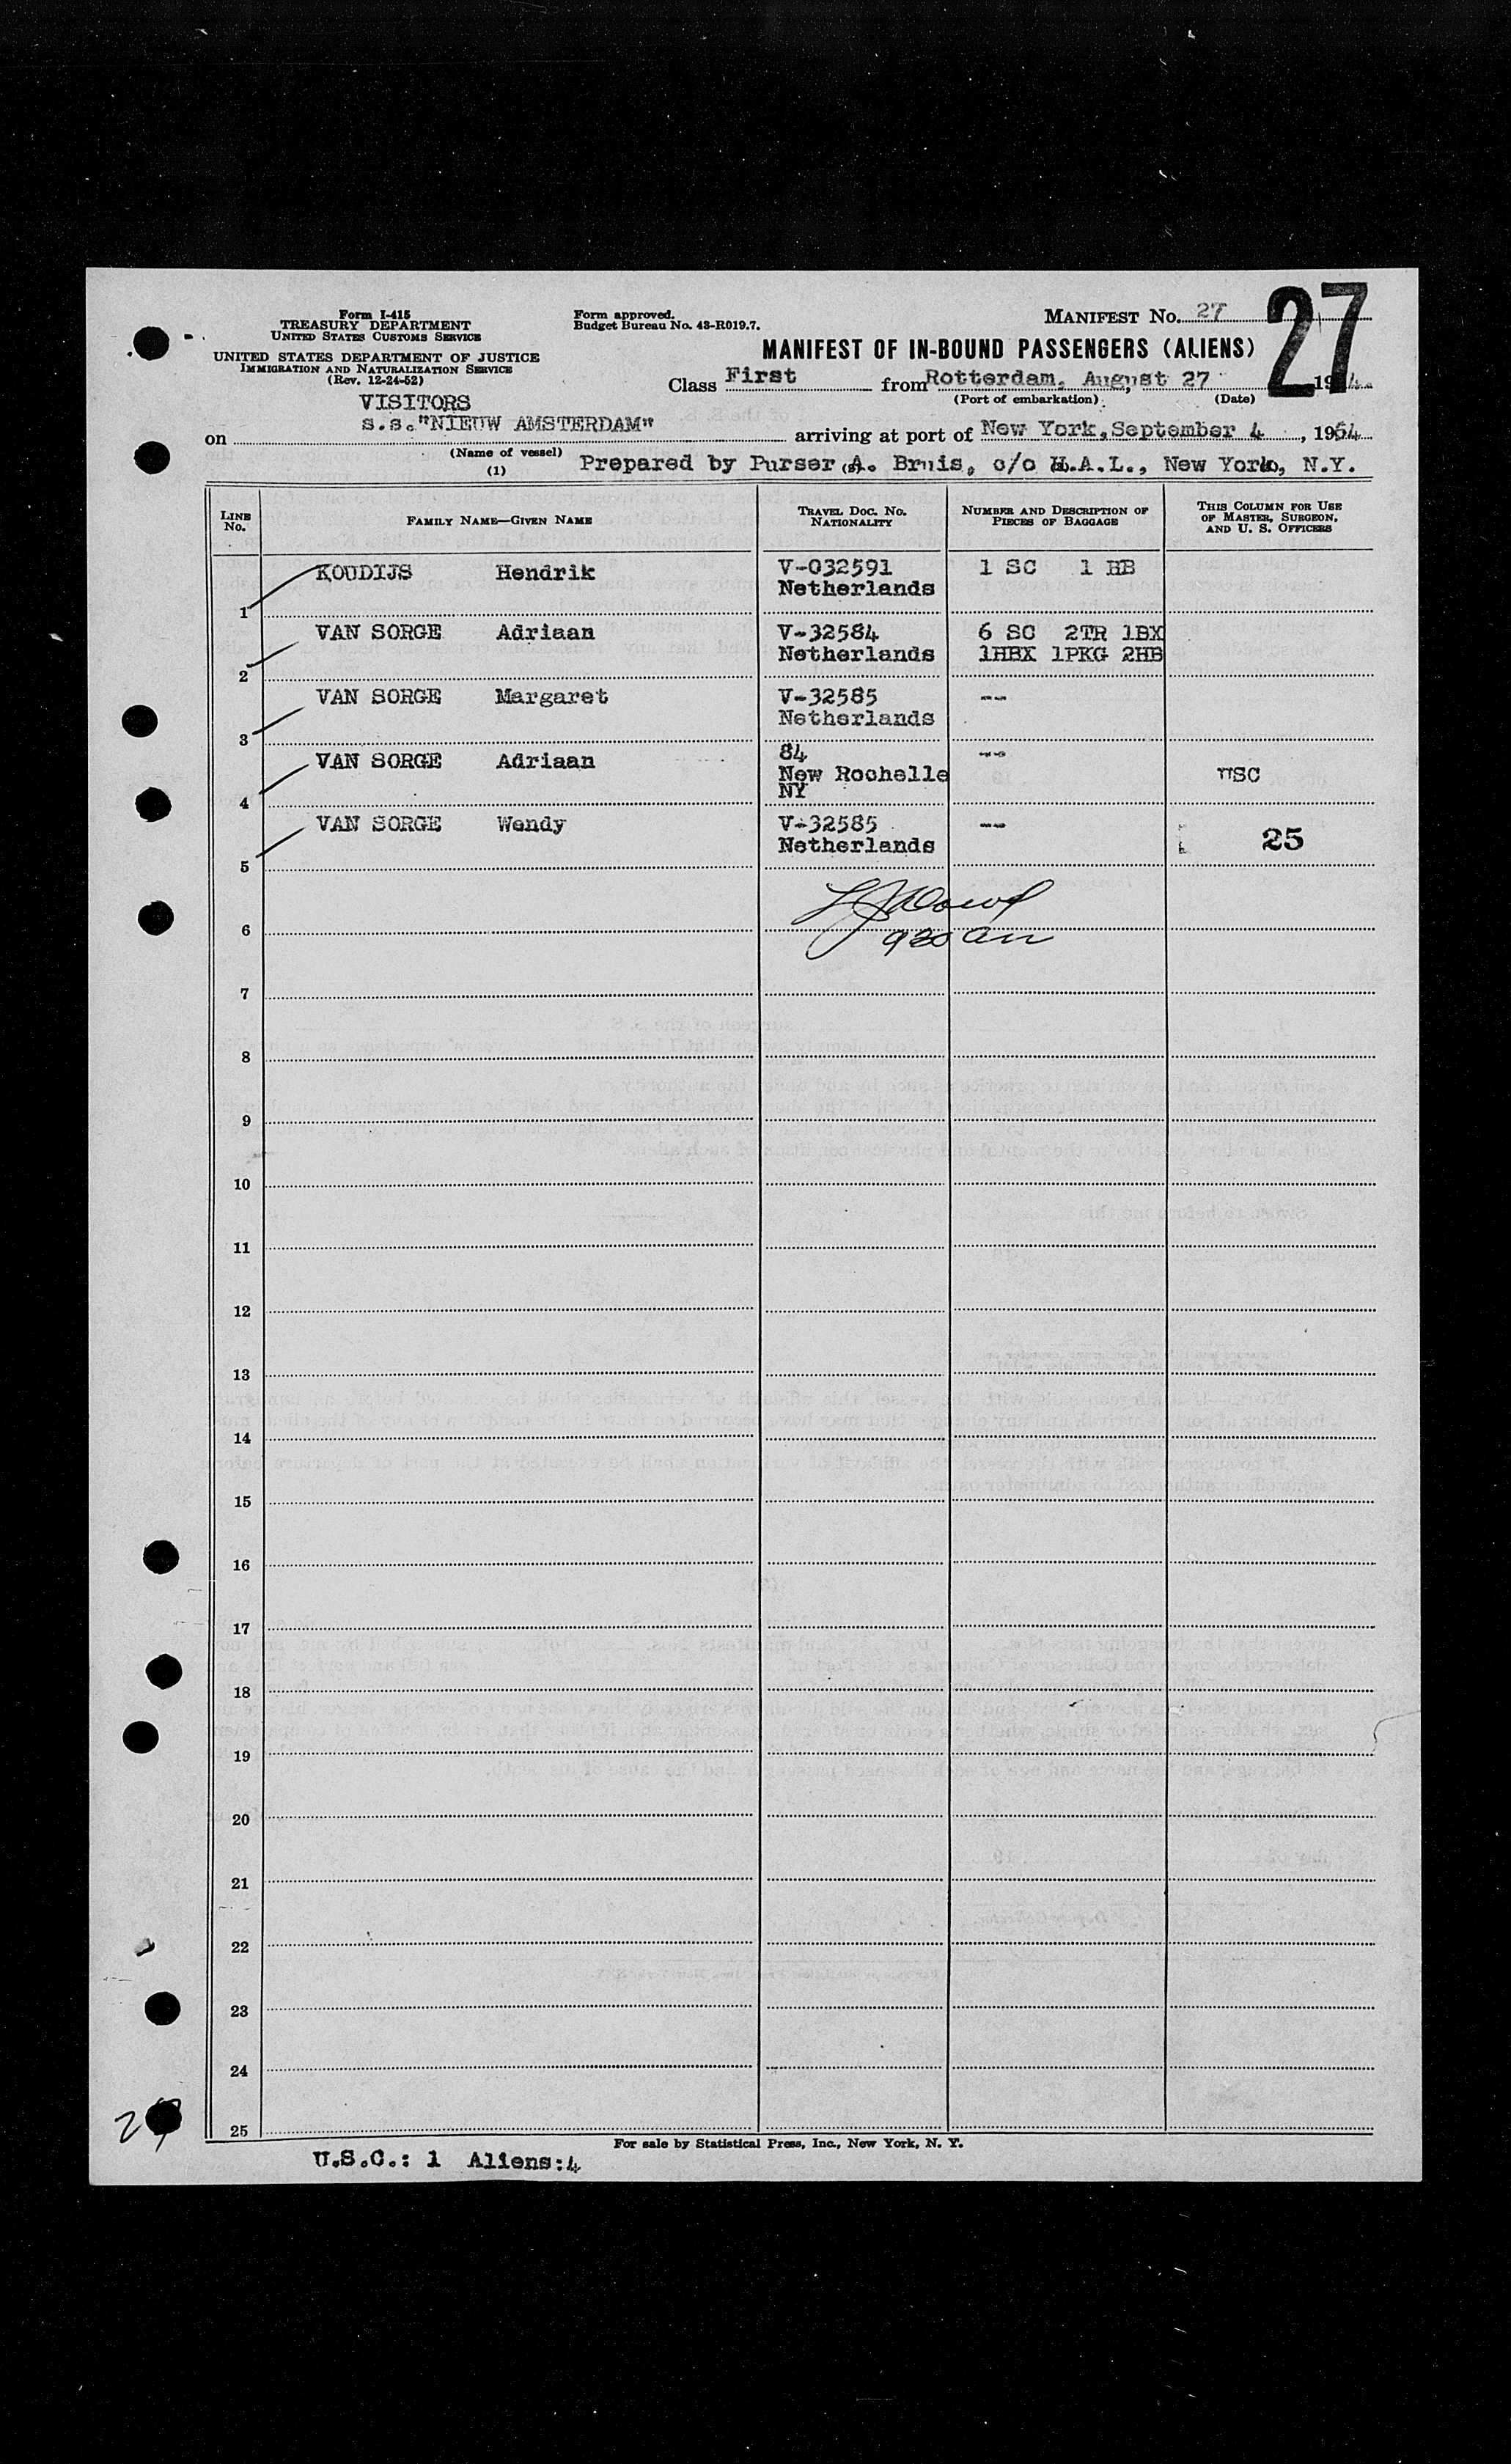 Form I-415
TREASURY DEPARTMENT
UNITED STATES CUSTOMS SERVICE
UNITED STATES DEPARTMENT OF JUSTICE
IMMIGRATION AND NATURALIZATION SERVICE
(Rev. 12-24-52)
Form approved.
Budget Bureau No. 43-R019.7.
MANIFEST NO. 27
27
MANIFEST OF IN-BOUND PASSENGERS (ALIENS)
Class First from Rotterdam, August 27, 1954
(Port of embarkation) (Date)
VISITORS
on s.s."NIEUW AMSTERDAM" arriving at port of New York, September 4, 1954
(Name of vessel)
(1) Prepared by Purser A. Bruis, c/o H.A.L., New York, N.Y.
LINE NO. FAMILY NAME—GIVEN NAME TRAVEL DOC. NO. NATIONALITY NUMBER AND DESCRIPTION OF PIECES OF BAGGAGE THIS COLUMN FOR USE OF MASTER, SURGEON, AND U. S. OFFICERS
KOUDIJS Hendrik V-032591 1 SC 1 HB
1 Netherlands
VAN SORGE Adriaan V-32584 6 SC 2TR 1BX
2 Netherlands 1HBX 1PKG 2HB
VAN SORGE Margaret V-32585 --
3 Netherlands
VAN SORGE Adriaan 84 --
New Rochelle USC
4 NY
VAN SORGE Wendy V-32585 --
5 Netherlands 25
6 930 am
7
8
9
10
11
12
13
14
15
16
17
18
19
20
21
22
23
24
25
For sale by Statistical Press, Inc., New York, N. Y.
U.S.C.: 1 Aliens:4